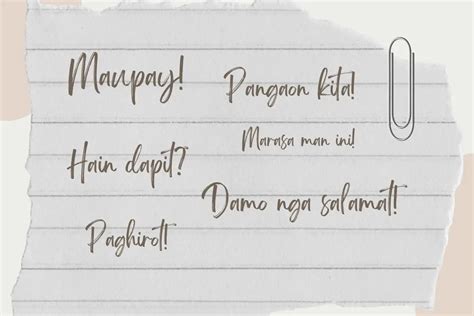 Maupay!
Pangaon kita!
Marasa man ini!
Hain dapit?
Damo nga salamat!
Paghirot!